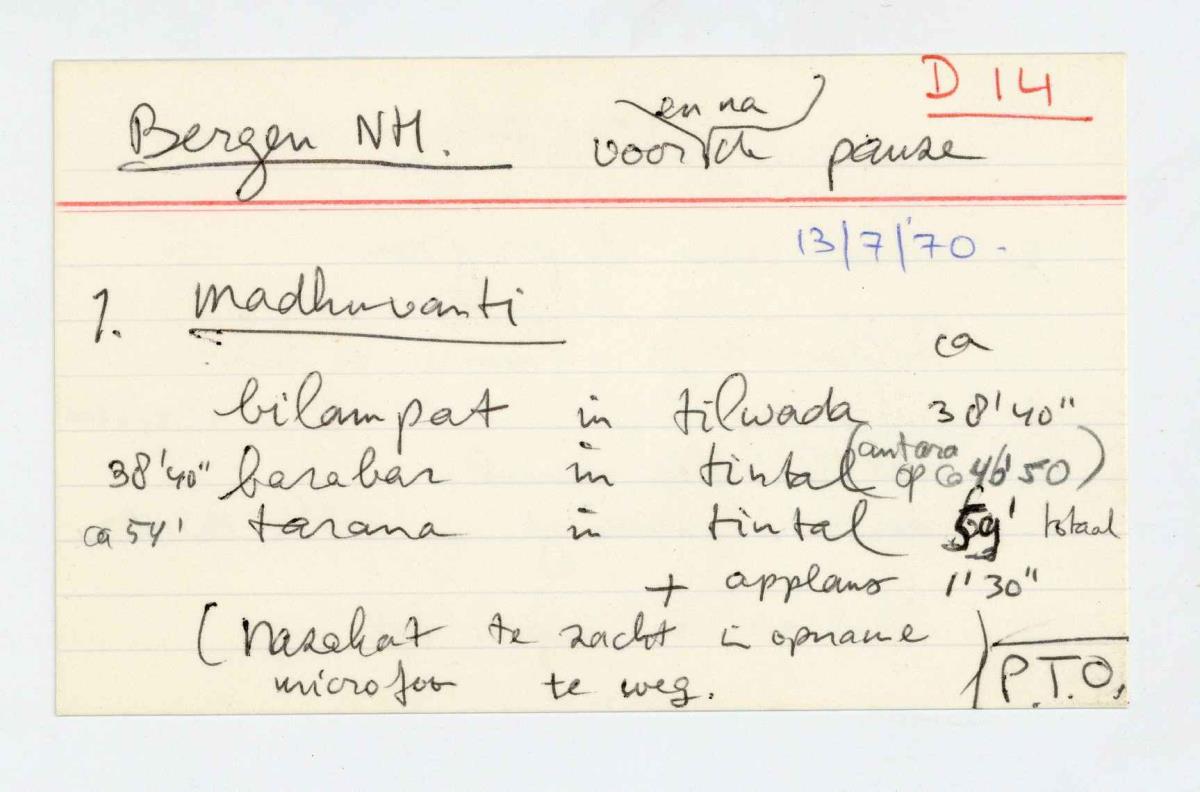 D 14
Bergen NH. voor en na de pauze
13/7/'70 -
1. Madhuvanti
ca
bilampat in tilwada 38'40"
38'40" barabar in tintal (antara op ca 46'50)
ca 54' tarana in tintal 59' totaal
+ applaus 1'30"
(Nazakat te zacht in opname
microfoon te weg.)
P.T.O.